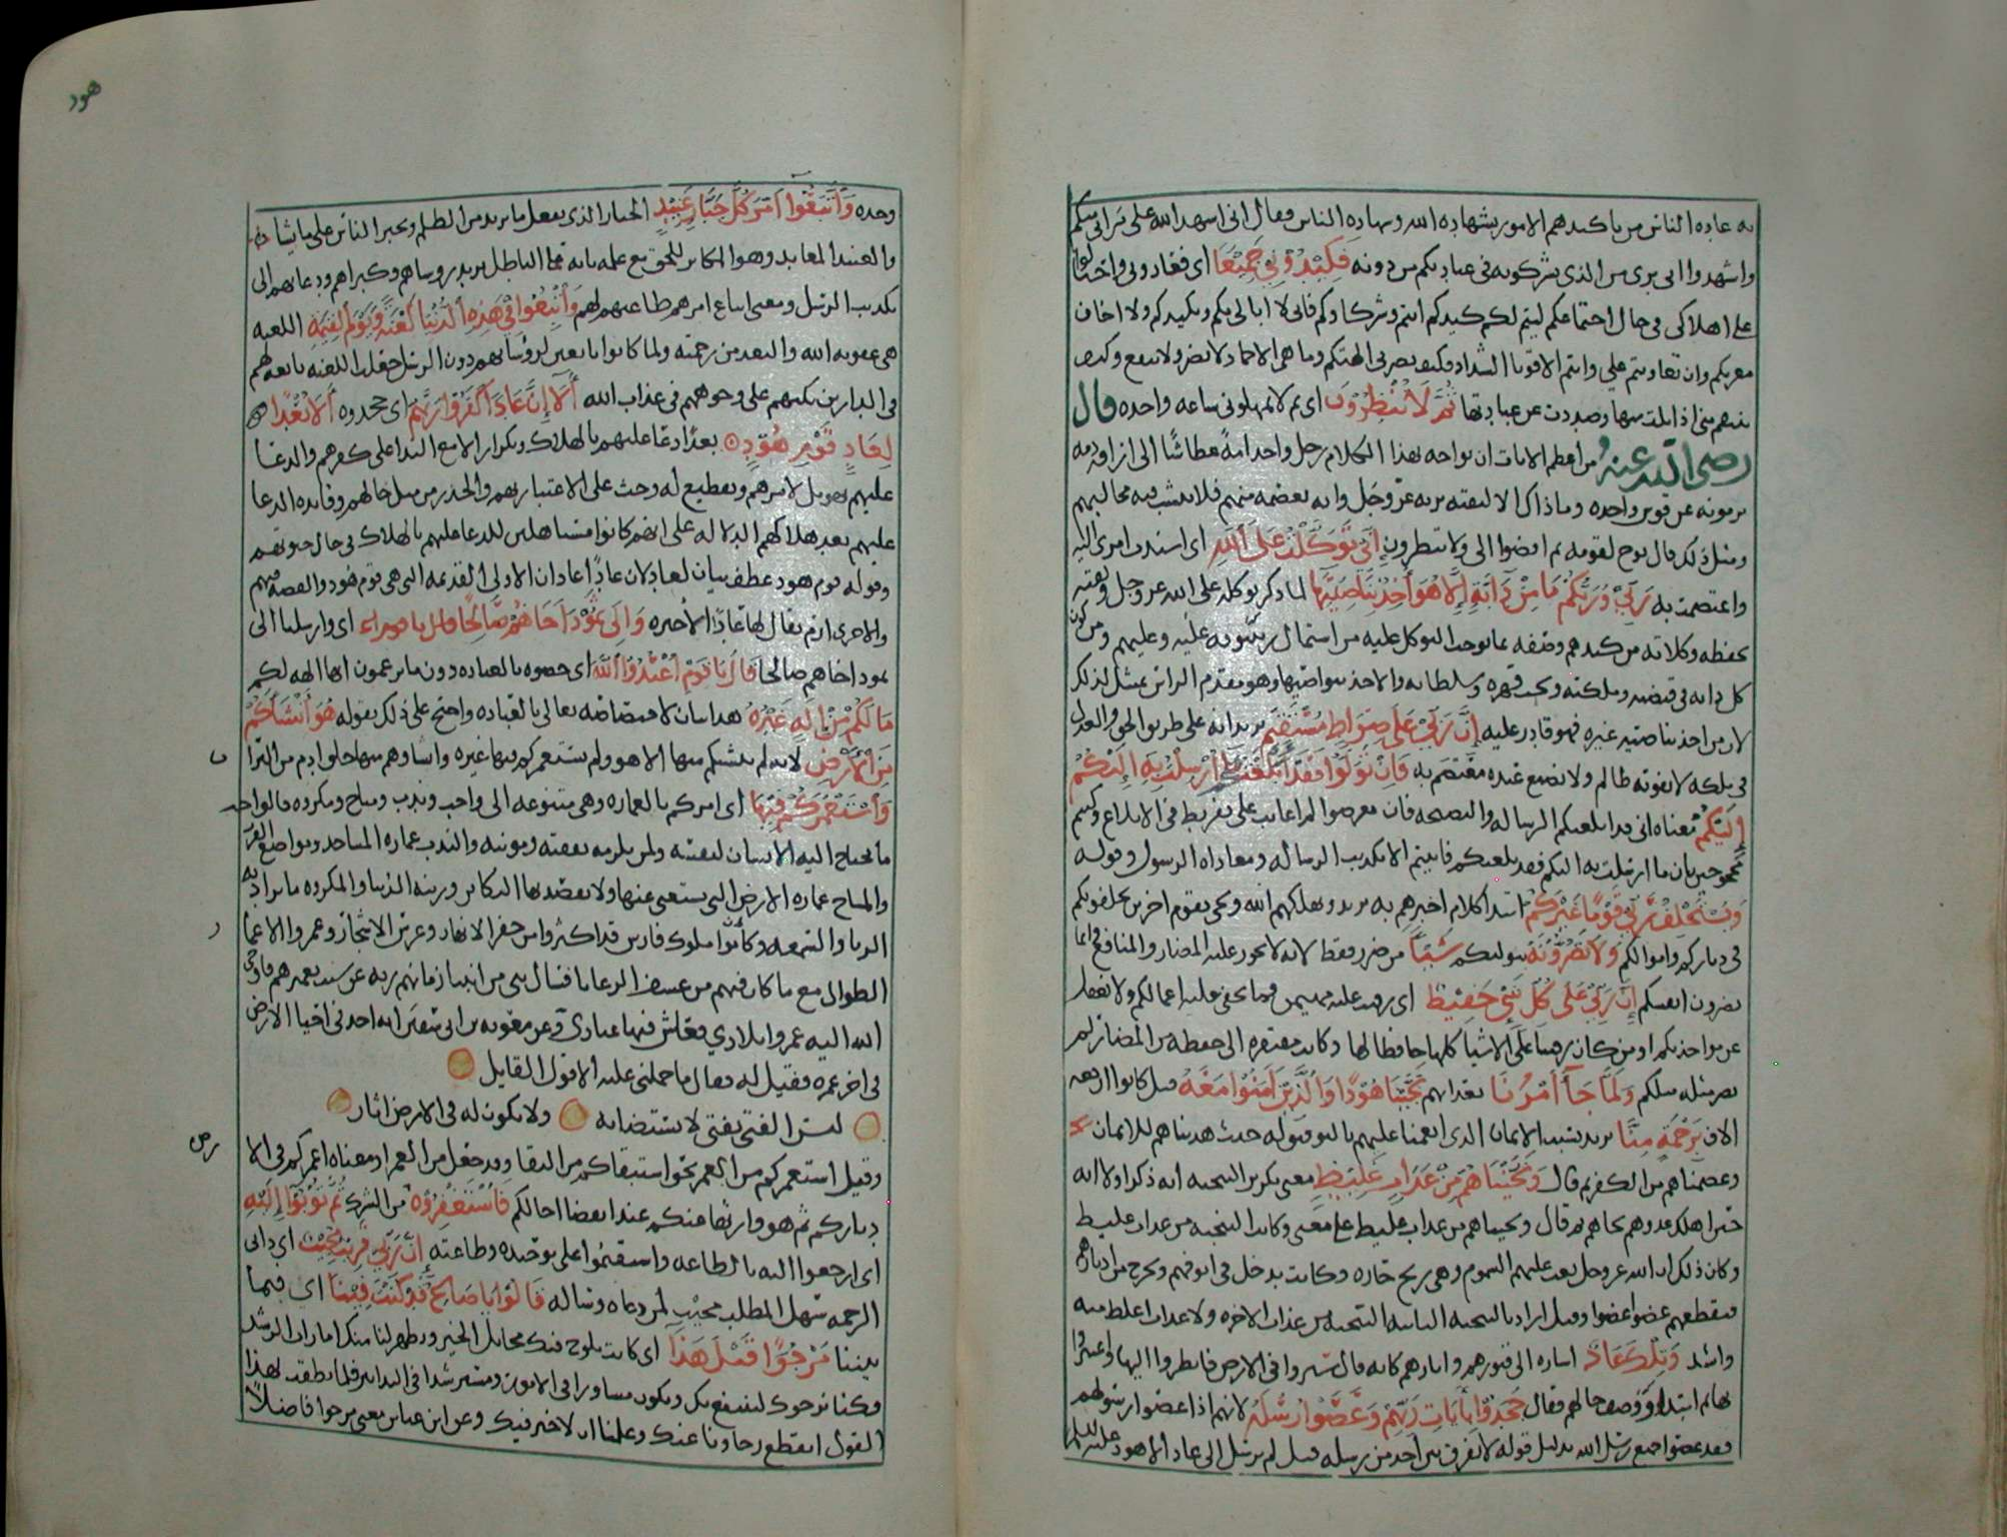 به عاده الناس من تاكيدهم الامور بشهاده الله وشهاده الناس فقال اني اشهد الله على براتي منكم
واشهدوا اني بري من الذي تشركونه في عبادتكم من دونه فَكِيْدُوْنِي جَمِيْعًا اي فعادوني واحتالوا
على اهلاكي في حال اجتماعكم ليتم لكم كيدكم انتم وشركاوكم فاني لا ابالي بكم وبكيدكم ولا اخاف
معرتكم وان تعاونتم علي وانتم الاقويا الشداد فكيف تضرني الهتكم وما هي الا جماد لا تضر ولا تنفع وكيف
منها وصددت عن عبادتها ثُمَّ لَا تُنْظِرُوْنَ اي ثم لا تمهلوني ساعه واحده قال
رضي الله عنه من اعظم الايات ان يواجه بهذا الكلام رجل واحد امة عطاشًا الى اراقه دمه
يرمونه عن قوس واحده وما ذاك الا لثقته بربه عز وجل وانه يعصمه منهم فلا تنشب فيه مخالبهم
ومثل ذلك قال نوح لقومه ثم اقضوا الي ولا تنظرون اِنِّي تَوَكَّلْتُ عَلَى اللهِ اي اسندت امري اليه
واعتصمت به رَبِّيْ وَرَبِّكُمْ مَا مِنْ دَابَّةٍ اِلَّا هُوَ آخِذٌ بِنَاصِيَتِهَا لما ذكر توكله على الله عز وجل وثقته
بحفظه وكلاته من كيدهم وصفه بما يوجب التوكل عليه من اشتمال ربوبيته عليه وعليهم ومن كون
كل دابه في قبضته وملكته وتحت قهره وسلطانه والاخذ بنواصيها وهو مقدم الراس تمثيل لذلك
لان من اخذ بناصيته غيره فهو قادر عليه اِنَّ رَبِّيْ عَلَى صِرَاطٍ مُسْتَقِيْمٍ يريد انه على طريق الحق والعدل
في ملكه لا يفوته ظالم ولا يضيع عنده معتصم به فَاِنْ تَوَلَّوْا فَقَدْ اَبْلَغْتُكُمْ مَا اُرْسِلْتُ بِهِ اِلَيْكُمْ
اِلَيْكُمْ معناه اني قد ابلغتكم الرساله والنصيحه فان تعرضوا لم اعاتب على تفريط في الابلاغ وكنتم
محجوجين بان ما ارسلت به اليكم قد بلغكم فابيتم الا تكذيب الرساله ومعاداه الرسول وقوله
وَيَسْتَخْلِفُ رَبِّيْ قَوْمًا غَيْرَكُمْ ابتدا كلام اخبرهم به يريد ويهلكهم الله ويجي بقوم اخرين يخلفونكم
في دياركم واموالكم وَلَا تَضُرُّوْنَهُ بتوليكم شَيْئًا من ضرر فقط لانه لا يجوز عليه المضار والمنافع وانما
تضرون انفسكم اِنَّ رَبِّيْ عَلَى كُلِّ شَيْءٍ حَفِيْظٌ اي رقيب عليه مهيمن فما تخفى عليه اعمالكم ولا يغفل
عن مواخذتكم او من كان رقيبًا على الاشيا كلها حافظا لها وكانت مفتقره الى حفظه من المضار لم
يضر مثله مثلكم وَلَمَّا جَآءَ اَمْرُنَا بعذابهم نَجَّيْنَا هُوْدًا وَالَّذِيْنَ اٰمَنُوْا مَعَهُ قيل كانوا اربعه
الاف بِرَحْمَةٍ مِنَّا يريد بسبب الايمان الذي انعمنا عليهم بالتوفيق له حيث هديناهم للايمان
وعصمناهم من الكفر ثم قال وَنَجَّيْنَاهُمْ مِنْ عَذَابٍ غَلِيْظٍ معنى تكرير التنجيه انه ذكر اولا انه
حين اهلك عدوهم نجاهم ثم قال ونجيناهم من عذاب غليظ على معنى وكانت التنجيه من عذاب غليظ
وكان ذلك ان الله عز وجل بعث عليهم السموم وهي ريح حاره وكانت تدخل في انوفهم وتخرج من ادبارهم
فتقطعهم عضوا عضوا وقيل اراد بالتنجيه الثانيه التنجيه من عذاب الاخره ولا عذاب اغلظ منه
واشد وَتِلْكَ عَادٌ اشاره الى قبورهم واثارهم كانه قال سيروا في الارض فانظروا اليها واعتبروا
بها ثم ابتدا ووصف حالهم فقال جَحَدُوْا بِاٰيَاتِ رَبِّهِمْ وَعَصَوْا رُسُلَهُ لانهم اذا عصوا رسولهم
فقد عصوا جميع رسل الله بدليل قوله لا نفرق بين احد من رسله قيل لم يرسل الى عاد الا هود عليه السلام
هود
وحده وَاتَّبَعُوْا اَمْرَ كُلِّ جَبَّارٍ عَنِيْدٍ الجبار الذي يفعل ما يريد من الظلم ويجبر الناس على ما يشا
والعنيد المعاند وهو المكابر للحق مع علمه بانه على الباطل يريد روساهم وكبراهم ودعاتهم الى
تكذيب الرسل ومعنى اتباع امرهم طاعتهم لهم وَاُتْبِعُوْا فِيْ هٰذِهِ الدُّنْيَا لَعْنَةً وَيَوْمَ الْقِيٰمَةِ اللعنه
هي عقوبه الله والبعد من رحمته ولما كانوا تابعين لروسايهم دون الرسل جعلت اللعنه تابعه لهم
في الدارين تكبهم على وجوههم في عذاب الله اَلَا اِنَّ عَادًا كَفَرُوْا رَبَّهُمْ اي جحدوه اَلَا بُعْدًا
لِعَادٍ قَوْمِ هُوْدٍ بعدًا دعا عليهم بالهلاك وتكرار الا مع الندا على كفرهم والدعا
عليهم تهويل لامرهم وتفظيع له وحث على الاعتبار بهم والحذر من مثل حالهم وفايده الدعا
عليهم بعد هلاكهم الدلاله على انهم كانوا مستاهلين للدعا عليهم بالهلاك في حال حيوتهم
وقوله قوم هود عطف بيان لعاد لان عادًا عادان الاولى القديمه التي هي قوم هود والقصه فيهم
والاخرى ارم يقال لها عادًا الاخيره وَاِلَى ثَمُوْدَ اَخَاهُمْ صَالِحًا قال يا قوم اعبدوا اي وارسلنا الى
ثمود اخاهم صالحا قَالَ يَا قَوْمِ اعْبُدُوا اللهَ اي خصوه بالعباده دون ما تزعمون انها الهه لكم
مَا لَكُمْ مِنْ اِلٰهٍ غَيْرُهُ هذا بيان لاختصاصه تعالى بالعباده واحتج على ذلك بقوله هُوَ اَنْشَاَكُمْ
مِنَ الْاَرْضِ لانه لم ينشيكم منها الا هو ولم يستعمركم فيها غيره وانشاوهم منها خلق ادم من التراب
وَاسْتَعْمَرَكُمْ فِيْهَا اي امركم بالعماره وهي متنوعه الى واجب وندب ومباح ومكروه فالواجب
ما يحتاج اليه الانسان لنفسه ولمن يلزمه نفقته ومونته والندب عماره المساجد ومواضع القرب
والمباح عماره الارض التي يستغنى عنها ولا يقصد بها التكاثر وزينه الدنيا والمكروه ما يراد به
الريا والسمعه وكانوا ملوك فارس قد اكثروا من حفر الانهار وغرس الاشجار وعمروا الاعمار
الطوال مع ما كان فيهم من عسف الرعايا فسال نبي من انبيا زمانهم ربه عن سبب تعميرهم فاوحى
الله اليه عمروا بلادي فعاش فيها عبادي وعن معويه بن ابي سفين انه اخذ في احيا الارض
في اخر عمره فقيل له فقال ما حملني عليه الا قول القايل
ليس الفتى بفتى لا يستضا به ولا يكون له في الارض اثار
وقيل استعمركم من العمر نحو استبقاكم من البقا وقد جعل من العمرا ومعناه اعمركم فيها
دياركم ثم هو وارثها منكم عند انقضا اجالكم فَاسْتَغْفِرُوْهُ من الشرك ثُمَّ تُوْبُوْا اِلَيْهِ
اي ارجعوا اليه بالطاعه واستقيموا على توحيده وطاعته اِنَّ رَبِّيْ قَرِيْبٌ مُجِيْبٌ اي داني
الرحمه سهل المطلب مجيب لمن دعاه وساله قَالُوْا يَا صَالِحُ قَدْ كُنْتَ فِيْنَا اي فيما
بيننا مَرْجُوًّا قَبْلَ هٰذَا اي كانت تلوح فيك مخايل الخير ويظهر لنا منك امارات الرشد
فكنا نرجوك لننتفع بك وتكون مشاورا في الامور ومسترشدا في التدابير فلما نطقت بهذا
القول انقطع رجاونا عنك وعلمنا ان لا خير فيك وعن ابن عباس يعني مرجوا فاضلًا